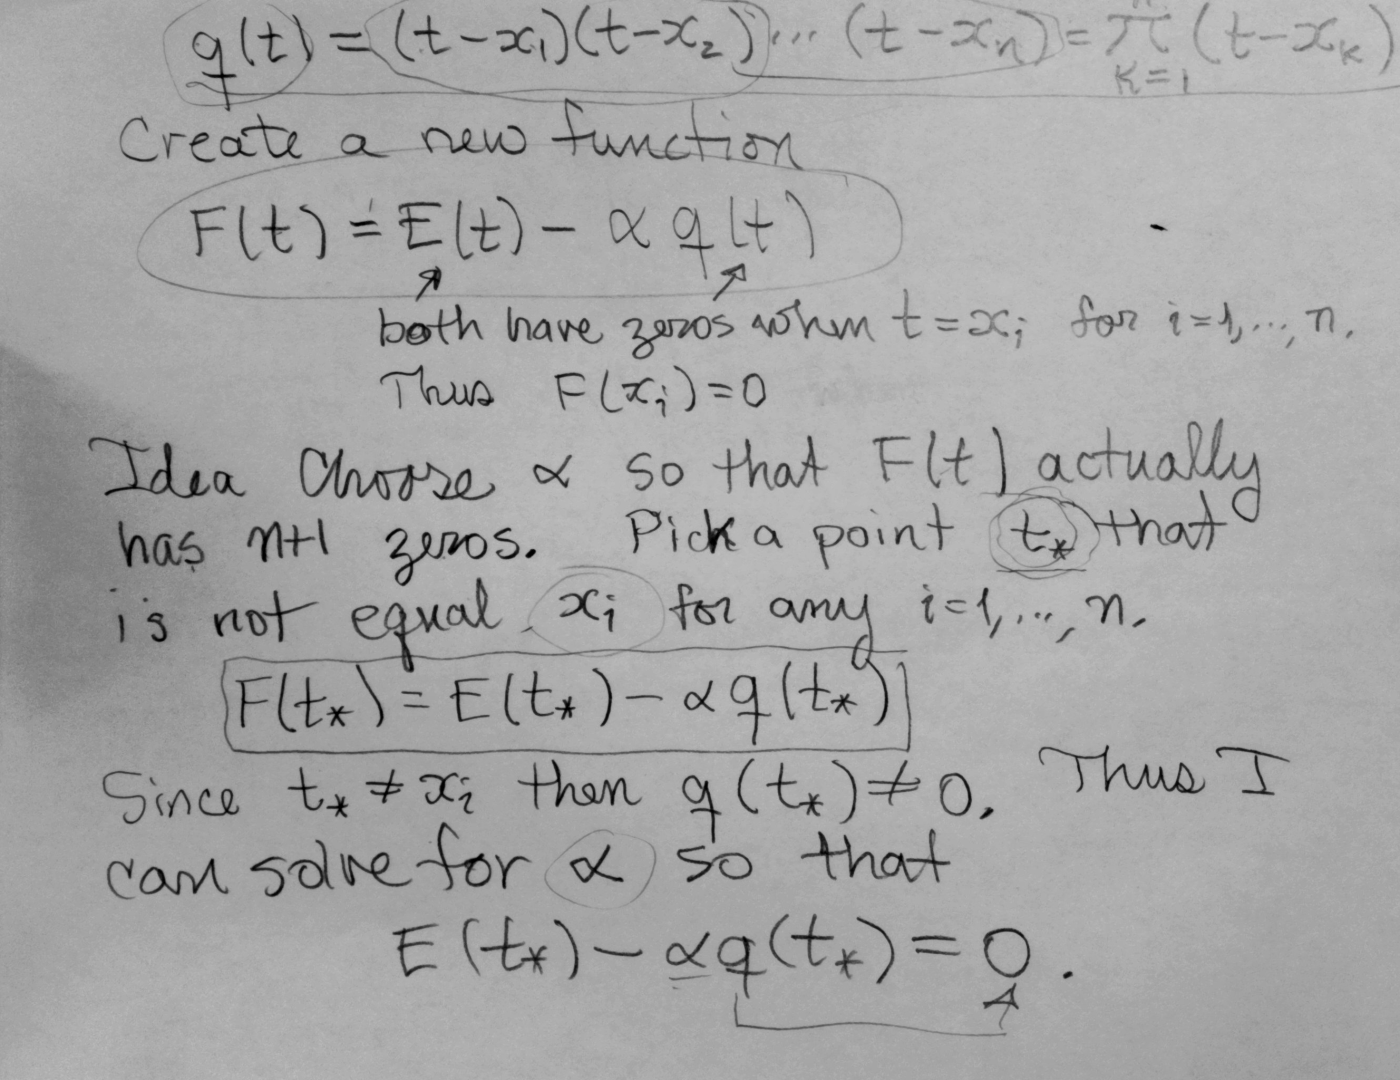 q(t) = (t-x₁)(t-x₂)... (t-xₙ) = π (t-xₖ)
n
k=1
Create a new function
F(t) = E(t) - α q(t)
both have zeros when t=xᵢ for i=1,..., n.
Thus F(xᵢ)=0
Idea Choose α so that F(t) actually
has n+1 zeros. Pick a point t* that
is not equal xᵢ for any i=1,..., n.
F(t*) = E(t*) - αq(t*)
Since t* ≠ xᵢ then q(t*) ≠ 0. Thus I
can solve for α so that
E(t*) - αq(t*) = 0.